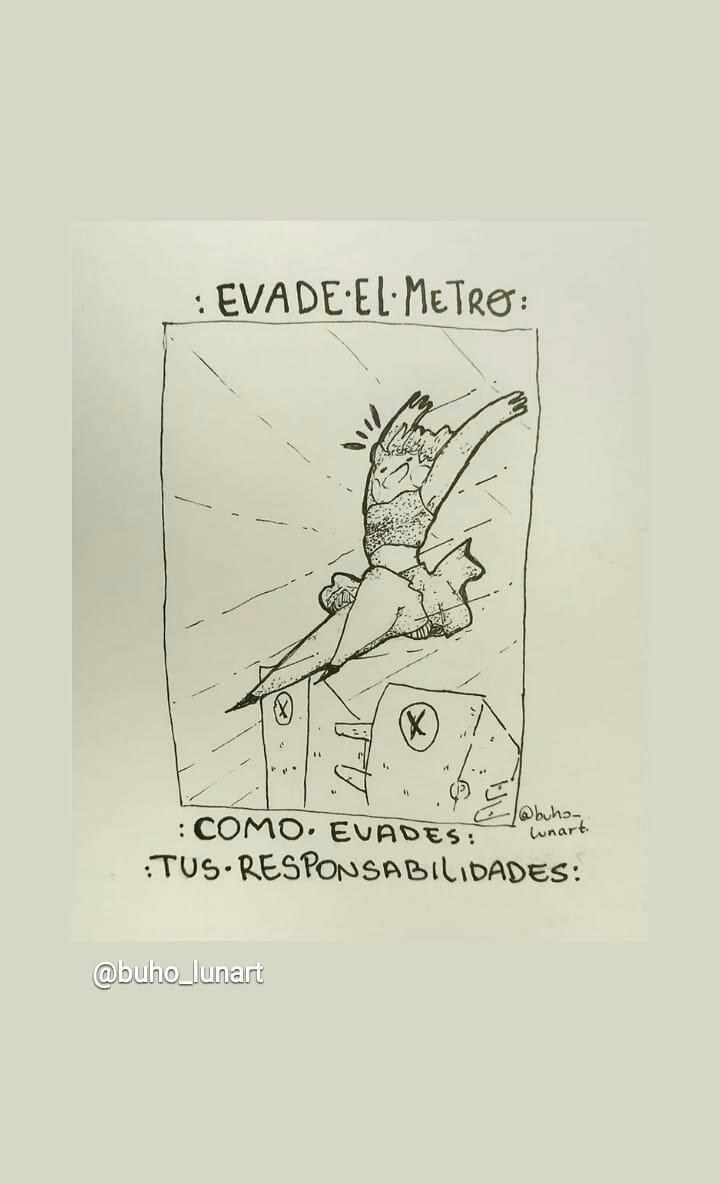 : EVADE·EL·METRO:
X
X
@buho_
lunart.
: COMO· EVADES:
:TUS·RESPONSABILIDADES:
@buho_lunart